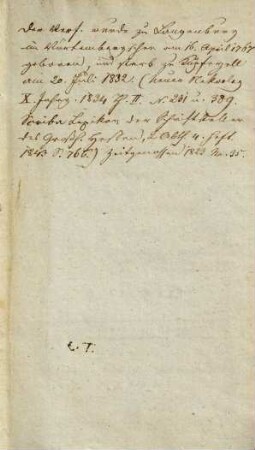 Der Verf. wurde zu Langenburg
im Würtembergischen am 16. April 1767
geboren, und starb zu
am 20. Juli 1832. (Neuer Nekrolog
X. Jahrg. 1834 Th. II. N. 231 u. 389.
Scriba Lexikon der Schriftsteller
des Grossh. Hessen, 2. Abth. 4. Heft
1843 S. 766.) Zeitgenossen 1823 No. 35.
E. T.